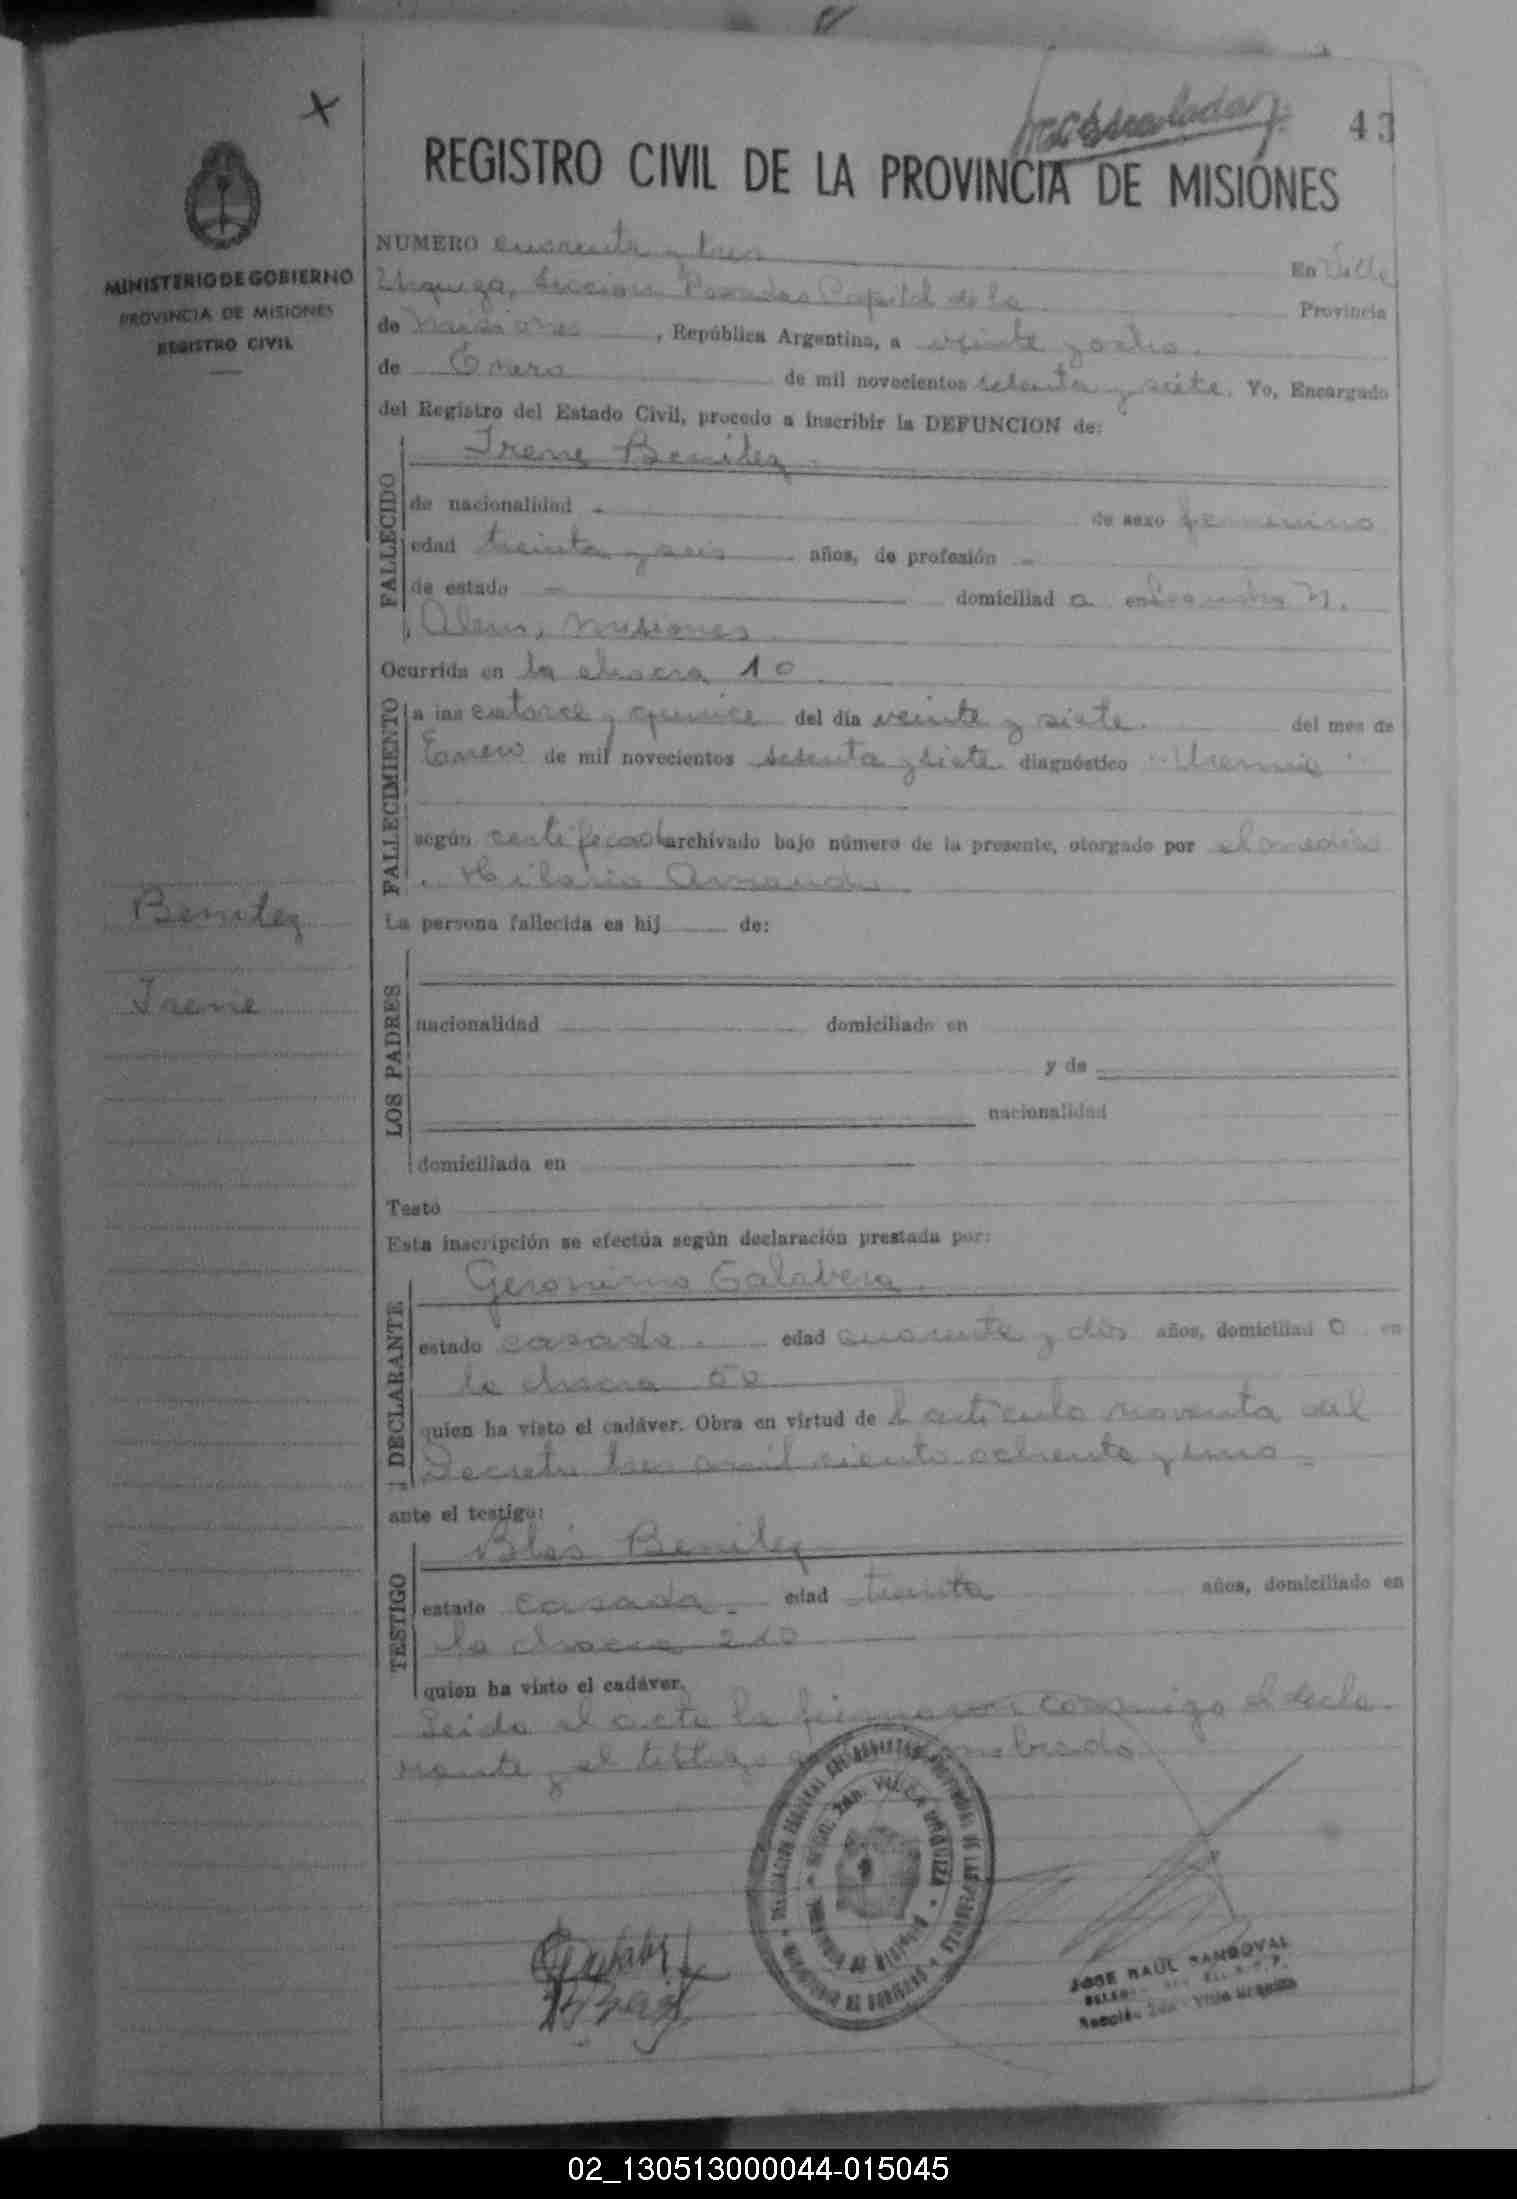 43
REGISTRO CIVIL DE LA PROVINCIA DE MISIONES
MINISTERIO DE GOBIERNO
PROVINCIA DE MISIONES
REGISTRO CIVIL
NUMERO cuarenta y tres En Villa
Urquiza, Seccion Posadas Capital de la Provincia
de Misiones, República Argentina, a veinte y ocho
de Enero de mil novecientos setenta y siete. Yo, Encargado
del Registro del Estado Civil, procedo a inscribir la DEFUNCION de:
FALLECIDO
Irene Benitez
de nacionalidad - de sexo femenino
edad treinta y seis años, de profesión -
de estado - domiciliad a en Leandro N.
Alem, Misiones
Ocurrida en la chacra 10
FALLECIMIENTO
a las catorce y quince del día veinte y siete del mes de
Enero de mil novecientos setenta y siete diagnóstico "Uremia"
según certificado archivado bajo número de la presente, otorgado por el medico
Hilario
La persona fallecida es hij de:
LOS PADRES
nacionalidad domiciliado en
y de
nacionalidad
domiciliada en
Testó
Esta inscripción se efectúa según declaración prestada por:
DECLARANTE
Geronimo Galavera
estado casado edad cuarenta y dos años, domiciliad o en
la chacra
quien ha visto el cadáver. Obra en virtud del articulo noventa del
Decreto tres mil ciento ochenta y uno
ante el testigo:
TESTIGO
Blas Benitez
estado casado edad treinta años, domiciliado en
la chacra
quien ha visto el cadáver.
Leida el acta la firmaron conmigo el decla-
rante y el testigo
Benitez
Irene
VILLA URQUIZA
JOSE RAUL SANDOVAL
Villa Urquiza
02_130513000044-015045